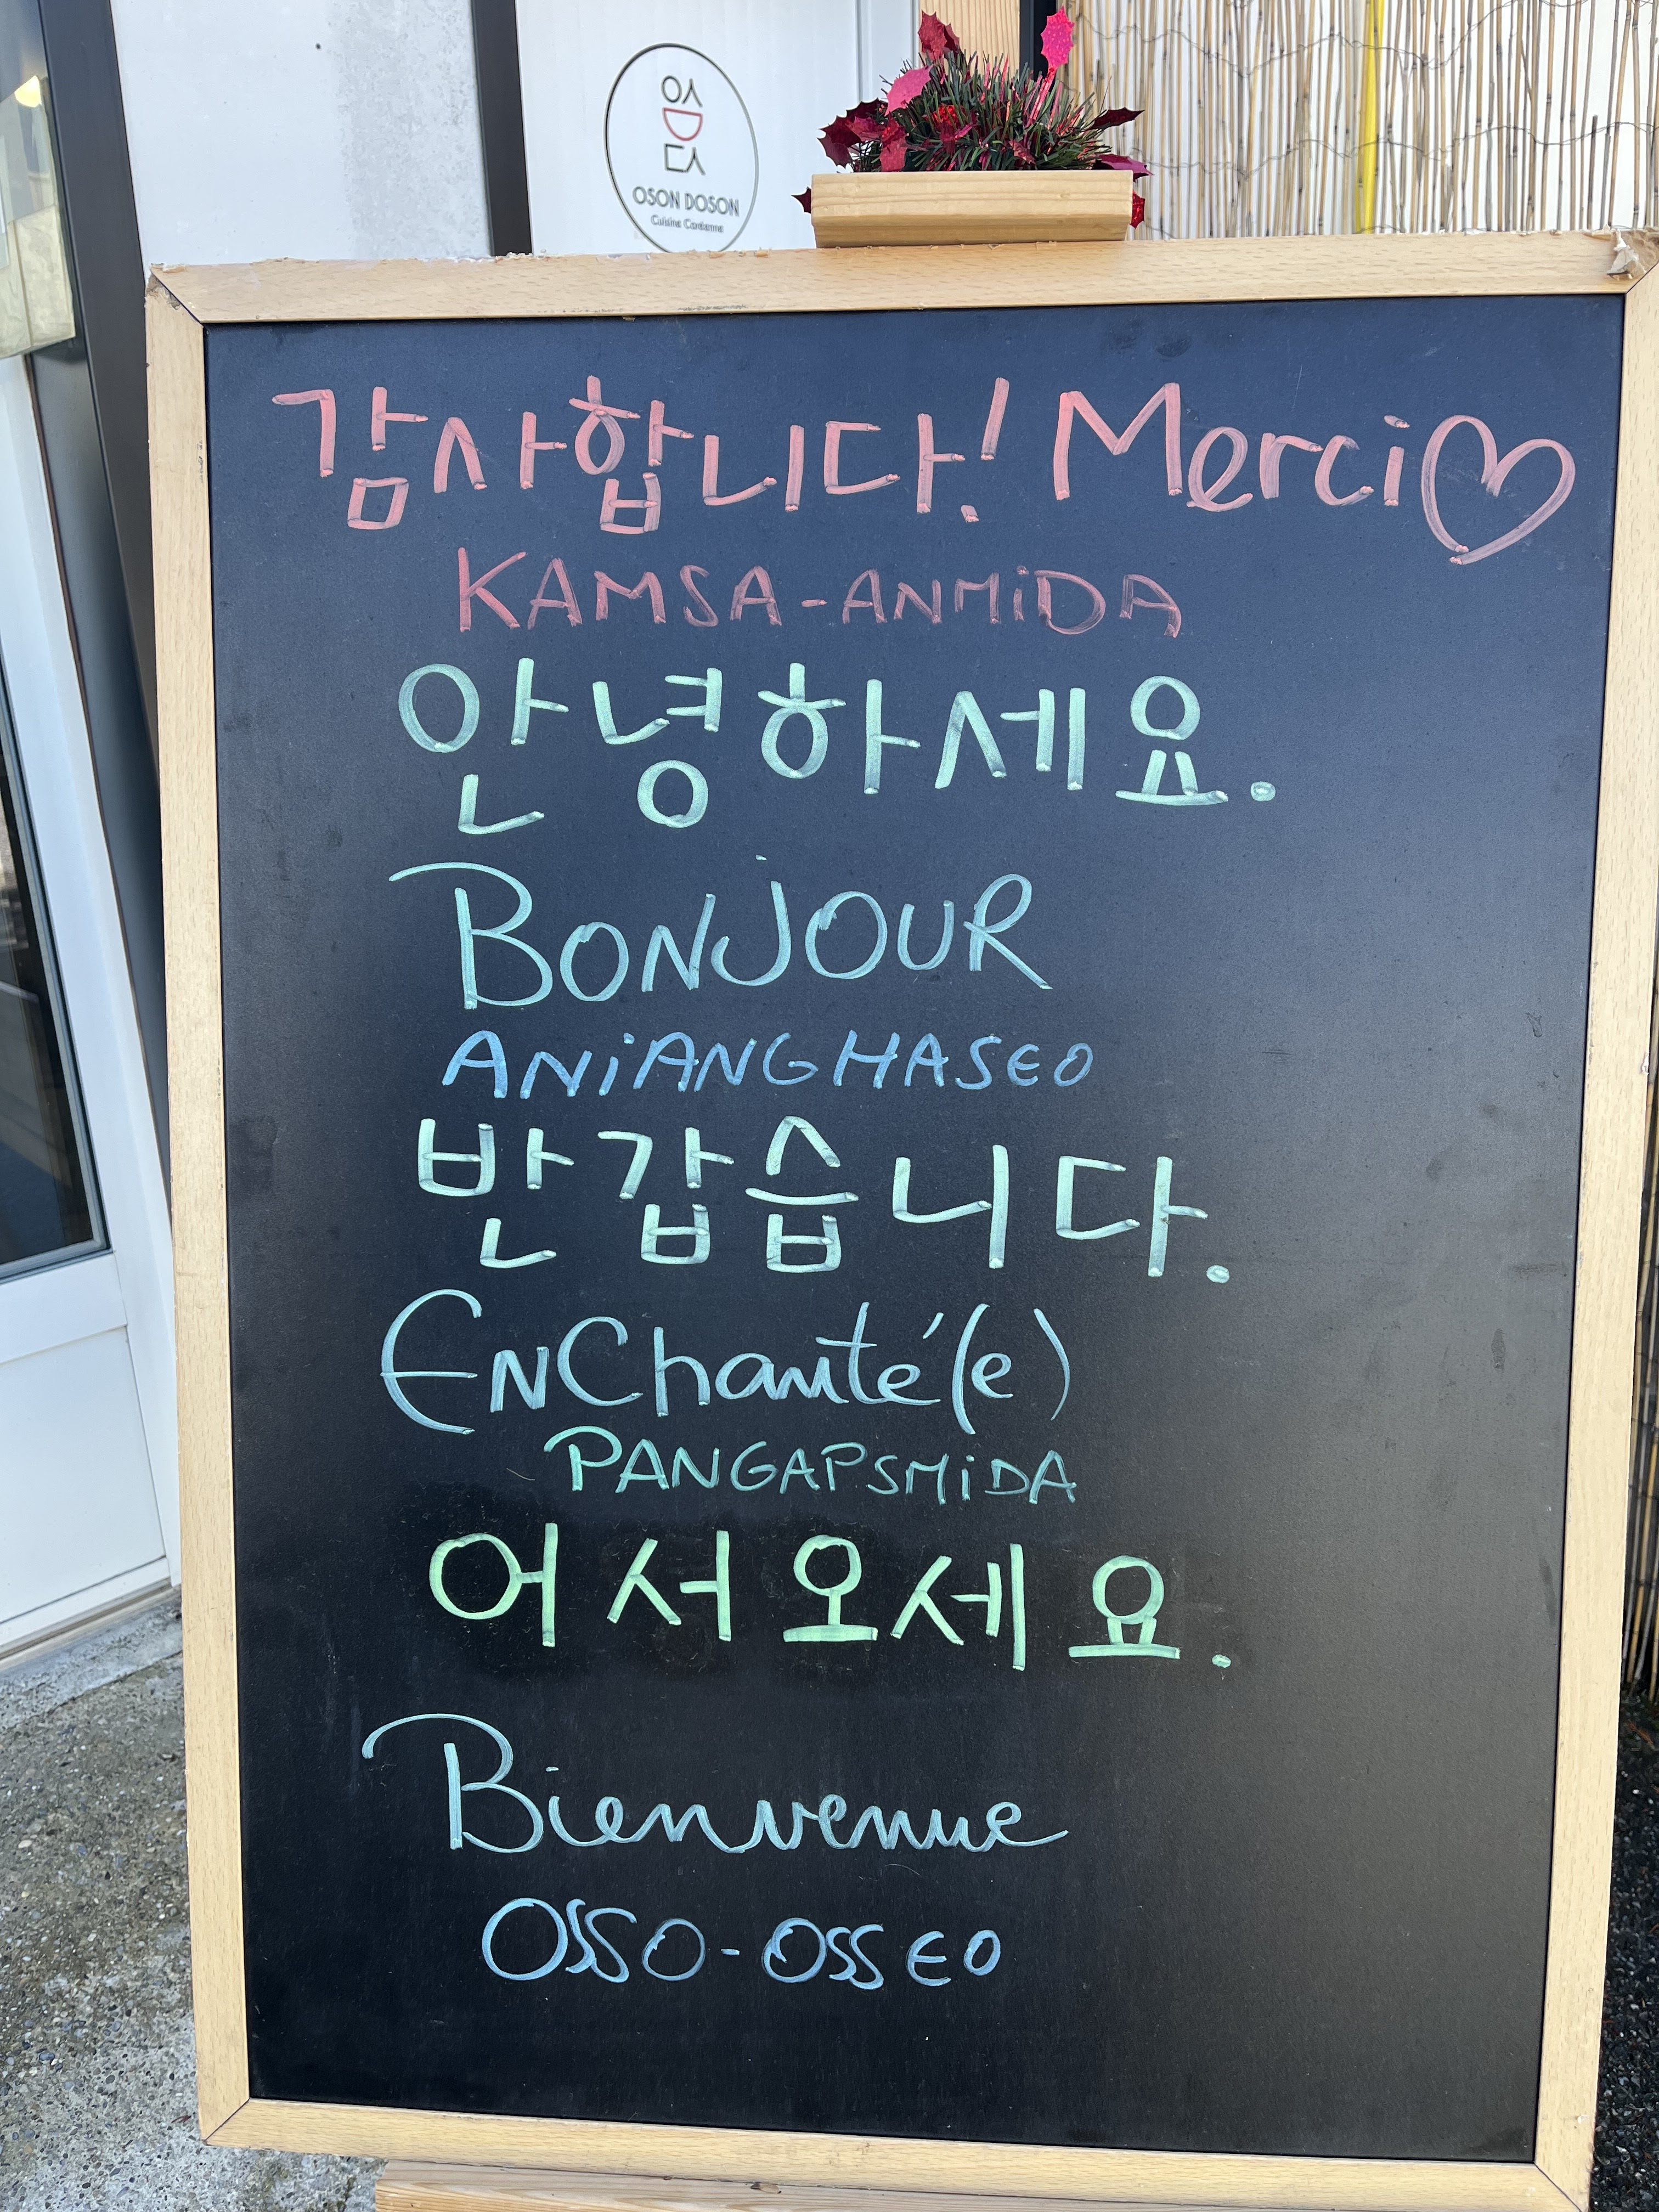 OSON DOSON
Cuisine Coréenne
감사합니다! Merci♡
KAMSA-ANMiDA
안녕하세요.
BONJOUR
ANiANGHASEO
반갑습니다.
ENChanté(e)
PANGAPSMiDA
어서오세요.
Bienvenue
OSSO-OSSEO